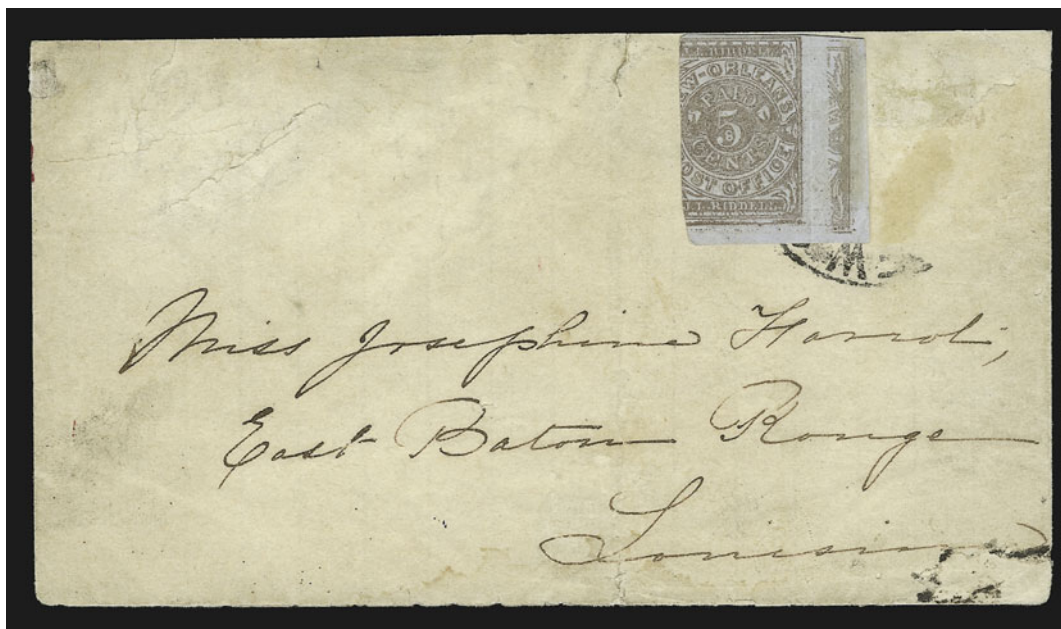 J.L. RIDDELL
W-ORLEANS
PAID
5
CENTS
POST OFFICE
J.L. RIDDELL
Miss Josephine
East Baton Rouge
Louisiana